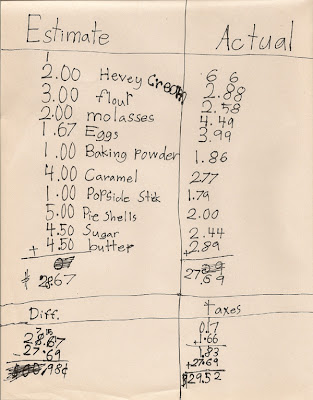 Estimate
1
2.00 Hevey Cream
3.00 flour
2.00 molasses
1.67 Eggs
1.00 Baking powder
4.00 Caramel
1.00 Popside Stick
5.00 Pie shells
4.50 Sugar
+ 4.50 butter
$ 28.67
Actual
6 6
2.88
2.58
4.49
3.99
1.86
2.77
1.79
2.00
2.44
+2.89
27
69
Diff.
7, 15
28.67
- 27.69
.98¢
Taxes
0.17
+1.66
1.83
+27.69
$29.52